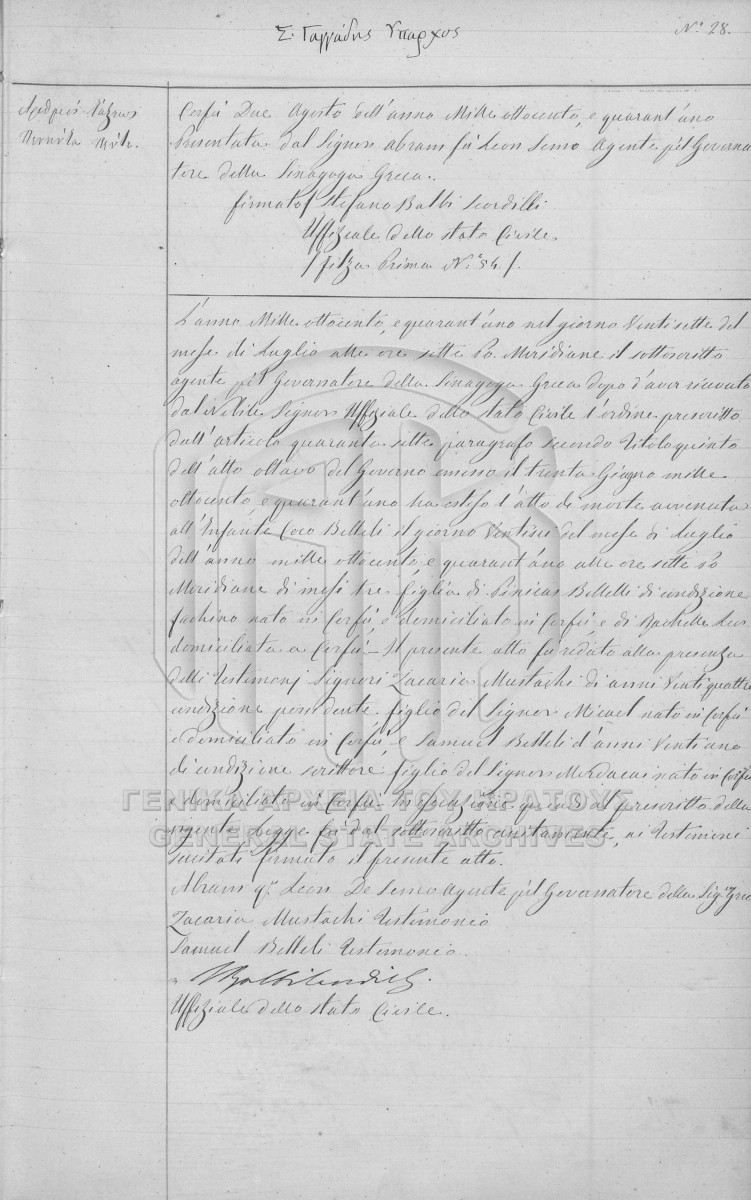 Σ. Γαγγάδης Ύπαρχος
Nº 28.
Αριθμός Τάξεως
Πενήντα
Corfù Due Agosto dell'anno Mille ottocento, e quarant'uno
Presentata dal Signore Abram fù Leon Semo Agente pel Governa
tore della Sinagoga Greca.
firmato/ Stefano Balbi Scordilli
Uffiziale dello stato Civile
/ filza Prima Nº 54 /.
L'anno Mille ottocento, e quarant'uno nel giorno Ventisette del
mese di Luglio alle ore sette Po. Meridiane il sottoscritto
agente pel Governatore della Sinagoga Greca dopo d'aver ricevuto
dal Nobile Signore Uffiziale dello stato Civile l'ordine prescritto
dall'articolo quaranta sette paragrafo secondo Titolo quinto
dell'atto ottavo del Governo emesso il trenta Giugno mille
ottocento, e quarant'uno ha esteso l'atto di morte avvenuta
all'Infante Coco Belleli il giorno Ventisei del mese di Luglio
dell'anno mille ottocento, e quarant'uno alle ore sette Po
Meridiane di mesi tre figlia di Pinicas Bellelli di condizione
fachino nato in Corfù e domiciliato in Corfù, e di Rachelle
domiciliata a Corfù – Il presente atto fù redato alla presenza
delli Testimonj Signori Zacaria Mustachi di anni Venti quattro
condizione possidente figlio del Signor Micael nato in Corfù
e domiciliato in Corfù, e Samuel Belleli d'anni Ventiuno
di condizione scrittore figlio del Signore Mordacai nato in Corfù
e domiciliato in Corfù. In esecuzione quindi al prescritto della
vigente Legge fù dal sottoscritto unitamente, ai Testimoni
sucitati firmato il presente atto.
Abram q. Leon De Semo Agente pel Governatore della Sig. Grec
Zacaria Mustachi Testimonio
Samuel Belleli Testimonio
Uffiziale dello stato Civile.
ΓΕΝΙΚΑ ΑΡΧΕΙΑ ΤΟΥ ΚΡΑΤΟΥΣ
GENERAL STATE ARCHIVES